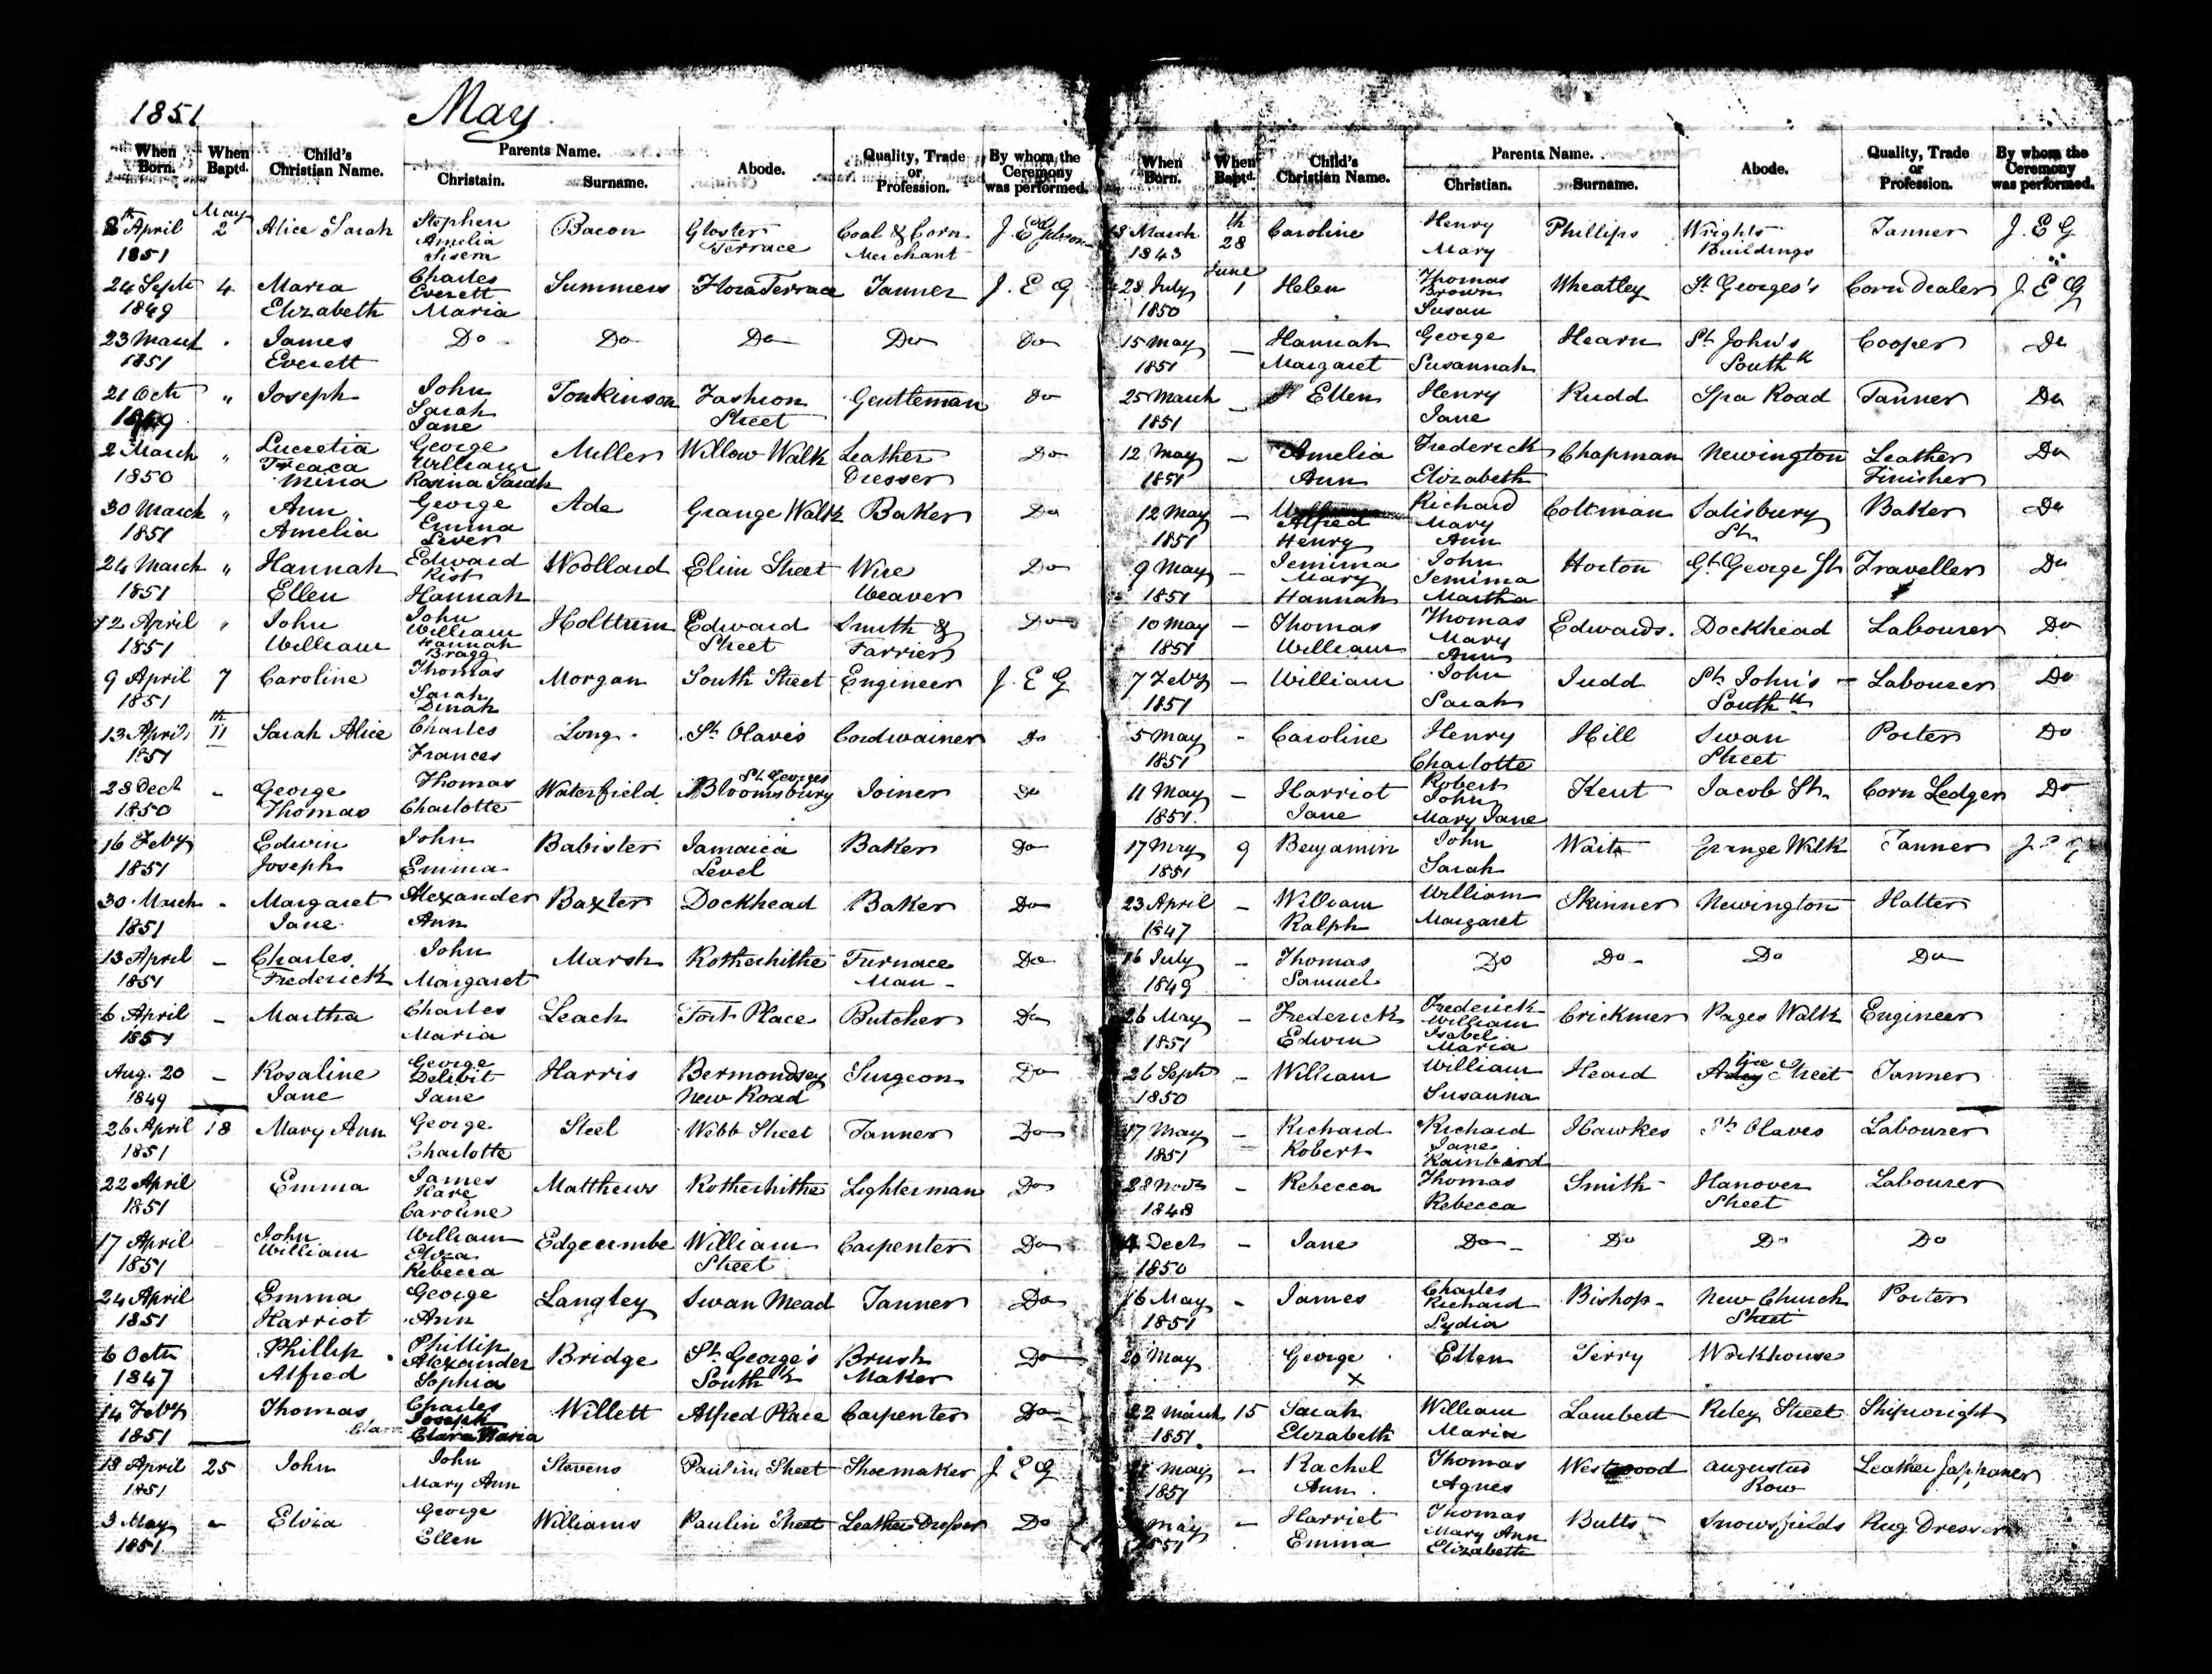 1851 May
When Born. When Baptd. Child's Christian Name. Parents Name. Christain. Surname. Abode. Quality, Trade or Profession. By whom the Ceremony was performed.
8th April 1851 May 2 Alice Sarah Stephen Amelia Bacon Gloster Terrace Coal & Corn Merchant J. E. Gibson
24 Sept 1849 4 Maria Elizabeth Charles Everett Maria Summers Flora Terrace Tanner J. E G
23 March 1851 James Everett Do Do Do Do Do
21 Oct 1849 " Joseph John Sarah Jane Tonkinson Fashion Street Gentleman Do
2 March 1850 " Lucretia Mina George William Rosina Sarah Miller Willow Walk Leather Dresser Do
30 March 1851 " Ann Amelia George Emma Lever Ade Grange Walk Baker Do
24 March 1851 " Hannah Ellen Edward Rist Hannah Woollard Elim Street Wire Weaver Do
12 April 1851 " John William John William Hannah Bragg Holttum Edward Street Smith & Farrier Do
9 April 1851 7 Caroline Thomas Sarah Dinah Morgan South Street Engineer J. E G
13 April 1851 11th Sarah Alice Charles Frances Long St Olave's Cordwainer Do
28 Dect 1850 - George Thomas Thomas Charlotte Waterfield St Georges Bloomsbury Joiner Do
16 Feby 1851 Edwin Joseph John Emma Babister Jamaica Level Baker Do
30 March 1851 - Margaret Jane Alexander Ann Baxter Dockhead Baker Do
13 April 1851 - Charles Frederick John Margaret Marsh Rotherhithe Furnace Man Do
6 April 1851 - Martha Charles Maria Leach Fort Place Butcher Do
Aug. 20 1849 - Rosaline Jane George Delibit Jane Harris Bermondsey New Road Surgeon Do
26 April 1851 18 Mary Ann George Charlotte Steel Webb Street Tanner Do
22 April 1851 Emma James Caroline Matthews Rotherhithe Lighterman Do
17 April 1851 John William William Eliza Rebecca Edgecumbe William Street Carpenter Do
24 April 1851 Emma Harriot George Ann Langley Swan Mead Tanner Do
6 Octr 1847 Phillip Alfred Phillip Alexander Sophia Bridge St George's Southk Brush Maker Do
14 Feby 1851 Thomas Charles Joseph Clara Maria Willett Alfred Place Carpenter Do
18 April 1851 25 John John Mary Ann Stevens Paulin Street Shoemaker J E G
3 May 1851 - Eliza George Ellen Williams Paulin Street Leather Dresser Do
When Born. When Baptd. Child's Christian Name. Parents Name. Christian. Surname. Abode. Quality, Trade or Profession. By whom the Ceremony was performed.
18 March 1843 28th Caroline Henry Mary Phillips Wrights Buildings Tanner J. E G
28 July 1850 June 1 Helen Thomas Brown Susan Wheatley St Georges's Corn Dealer J. E G
15 May 1851 - Hannah Margaret George Susannah Hearn St John's Southk Cooper Do
25 March 1851 - Ellen Henry Jane Rudd Spa Road Tanner Do
12 May 1851 - Amelia Ann Frederick Elizabeth Chapman Newington Leather Finisher Do
12 May 1851 - Alfred Henry Richard Mary Ann Coltman Salisbury St. Baker Do
9 May 1851 - Jemima Mary Hannah John Jemima Martha Horton Gt George St Traveller Do
10 May 1851 - Thomas William Thomas Mary Ann Edwards. Dockhead Labourer Do
7 Feby 1851 - William John Sarah Judd St John's Southk Labourer Do
5 May 1851 - Caroline Henry Charlotte Hill Swan Street Porter Do
11 May 1851 - Harriot Jane Robert John Mary Jane Kent Jacob St. Corn Ledger Do
17 May 1851 9 Benjamin John Sarah Waite Grange Walk Tanner J E G
23 April 1847 - William Ralph William Margaret Skinner Newington Hatter
16 July 1849 - Thomas Samuel Do Do Do Do
26 May 1851 - Frederick Edwin Frederick William Isabel Maria Crickmer Pages Walk Engineer
26 Sept 1850 - William William Susanna Heard Alice Street Tanner
17 May 1851 - Richard Robert Richard Jane Rainbird Hawkes St Olaves Labourer
28 Novr 1848 - Rebecca Thomas Rebecca Smith Hanover Street Labourer
4 Dect 1850 - Jane Do Do Do Do
16 May 1851 - James Charles Richard Lydia Bishop New Church Street Porter
20 May George x Ellen Terry Workhouse
22 March 1851 15 Sarah Elizabeth William Maria Lambert Riley Street Shipwright
May 1851 - Rachel Ann Thomas Agnes Westwood Augustus Row Leather Japhaner
May 1851 - Harriet Emma Thomas Mary Ann Elizabeth Butts Snowsfields Rug Dresser